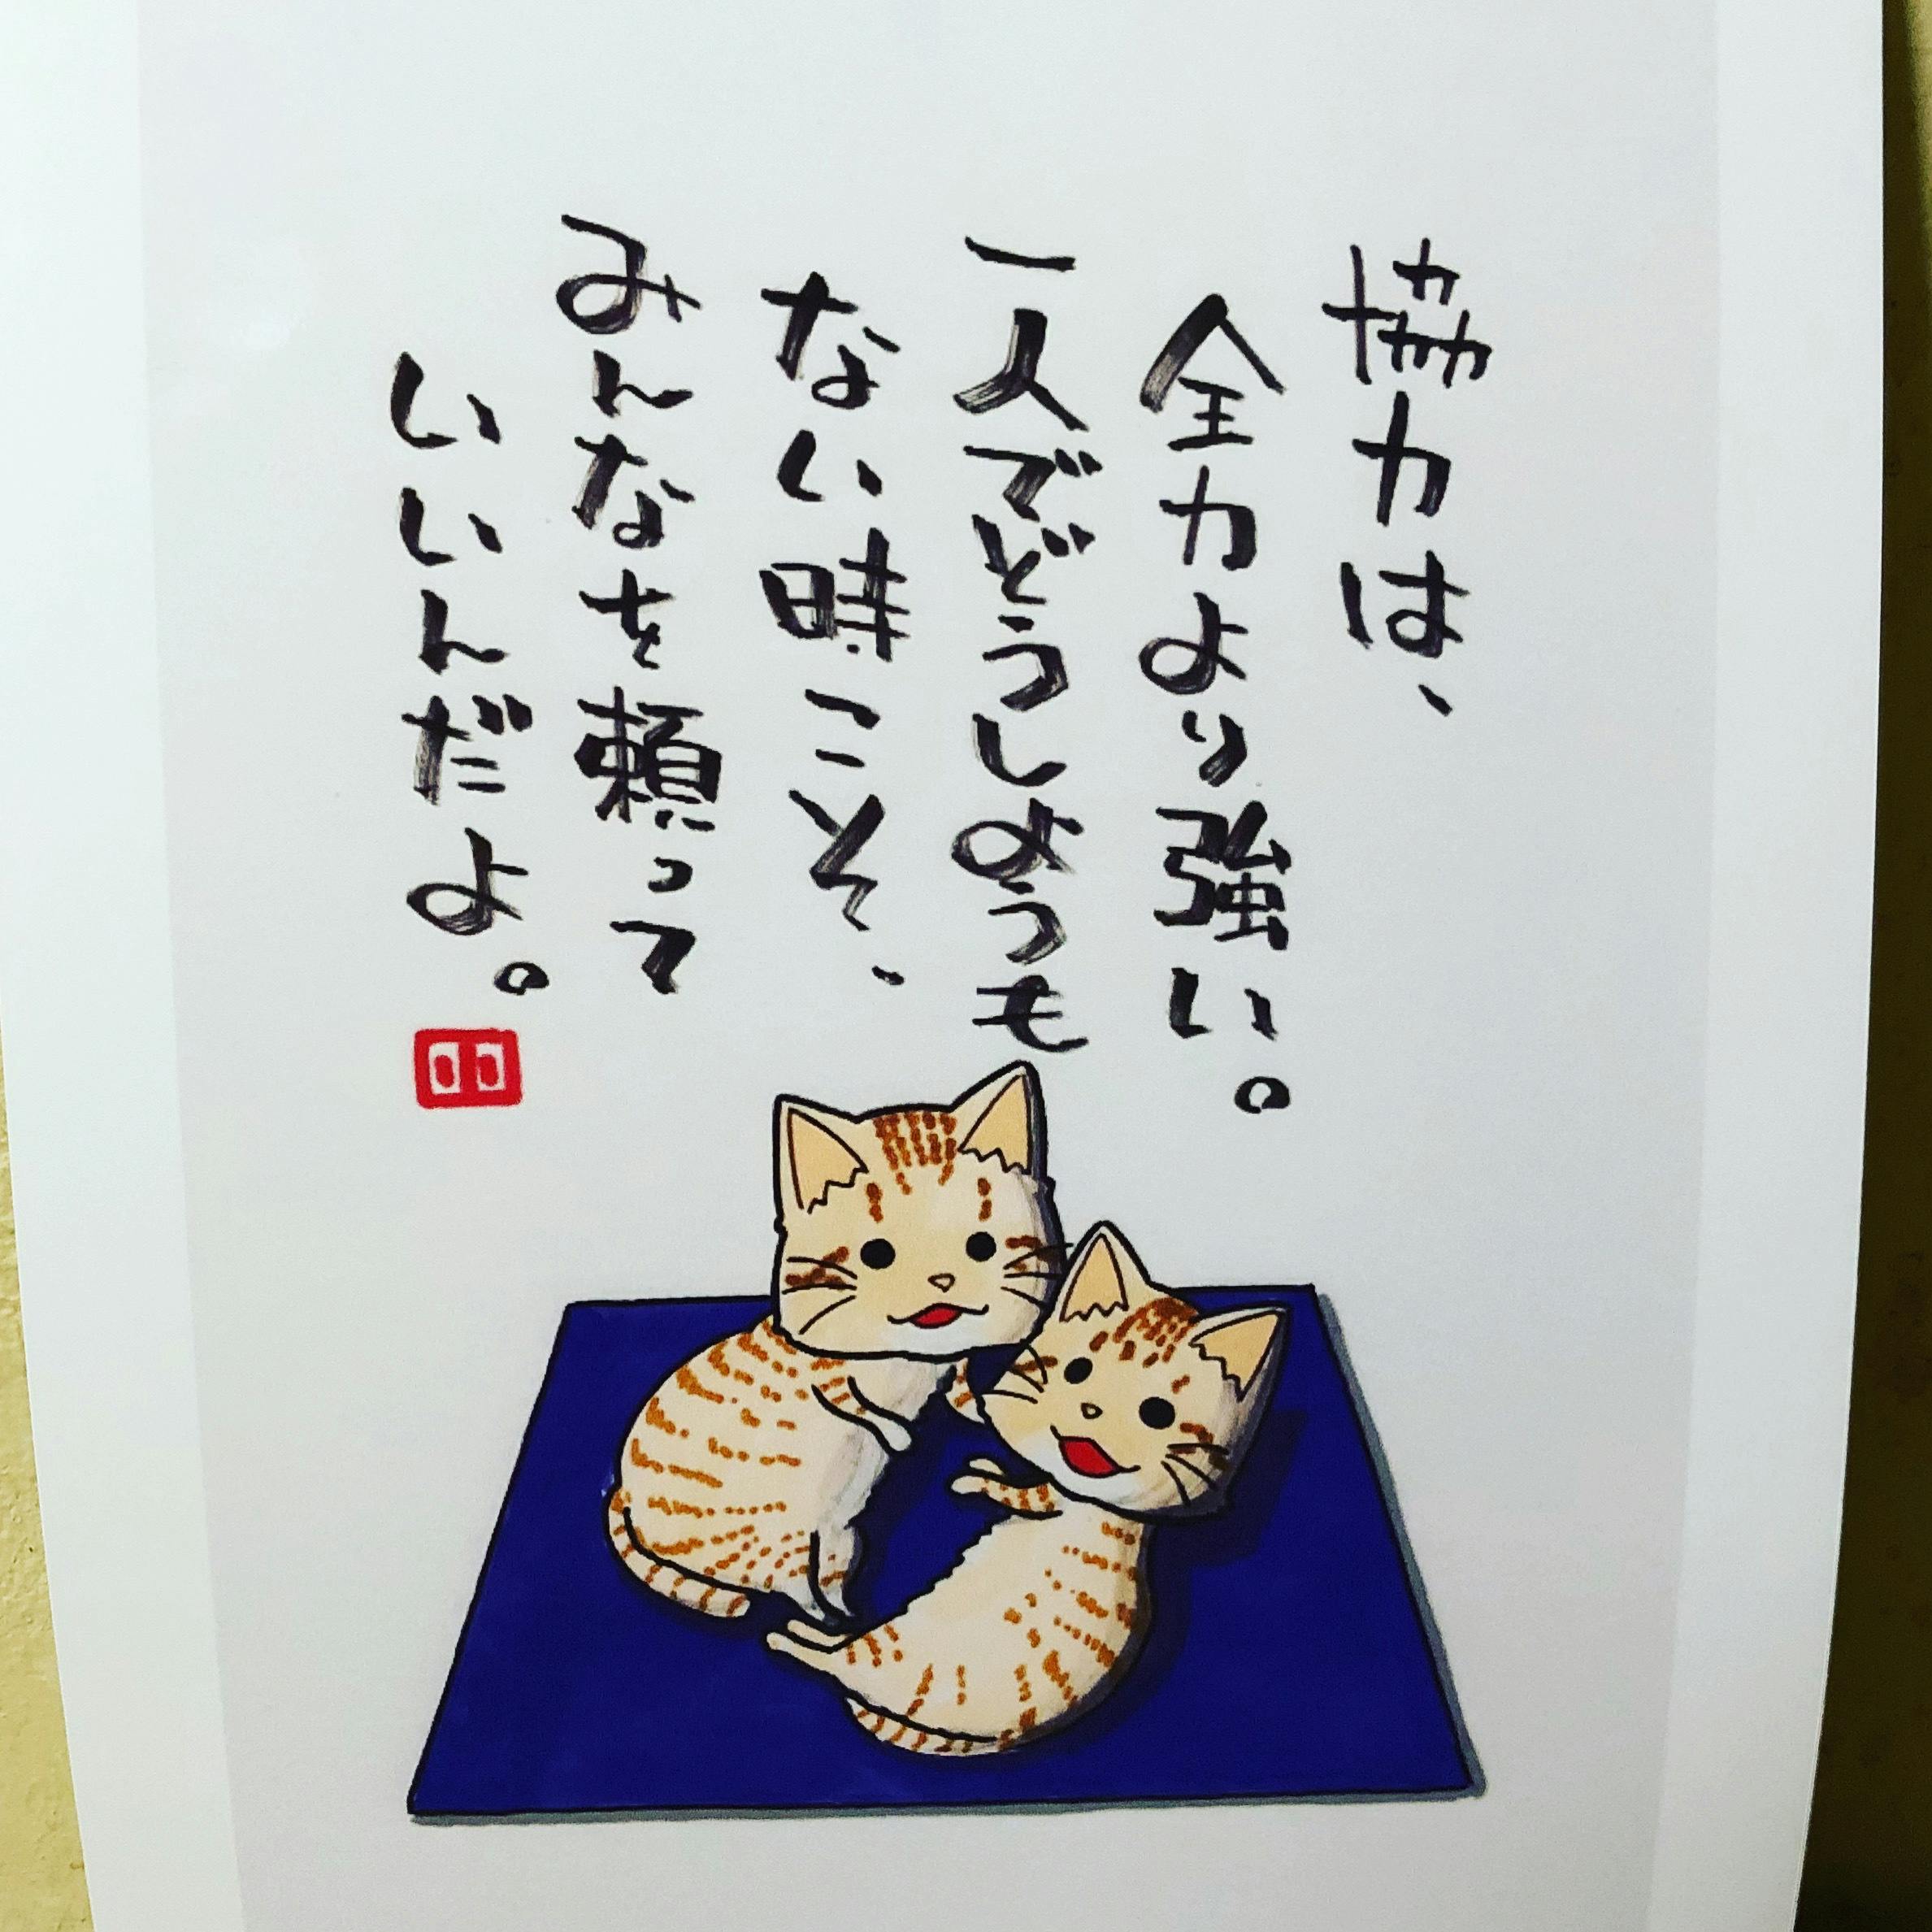 協力は、
全力より強い。
一人でどうしようも
ない時こそ、
みんなを頼って
いいんだよ。